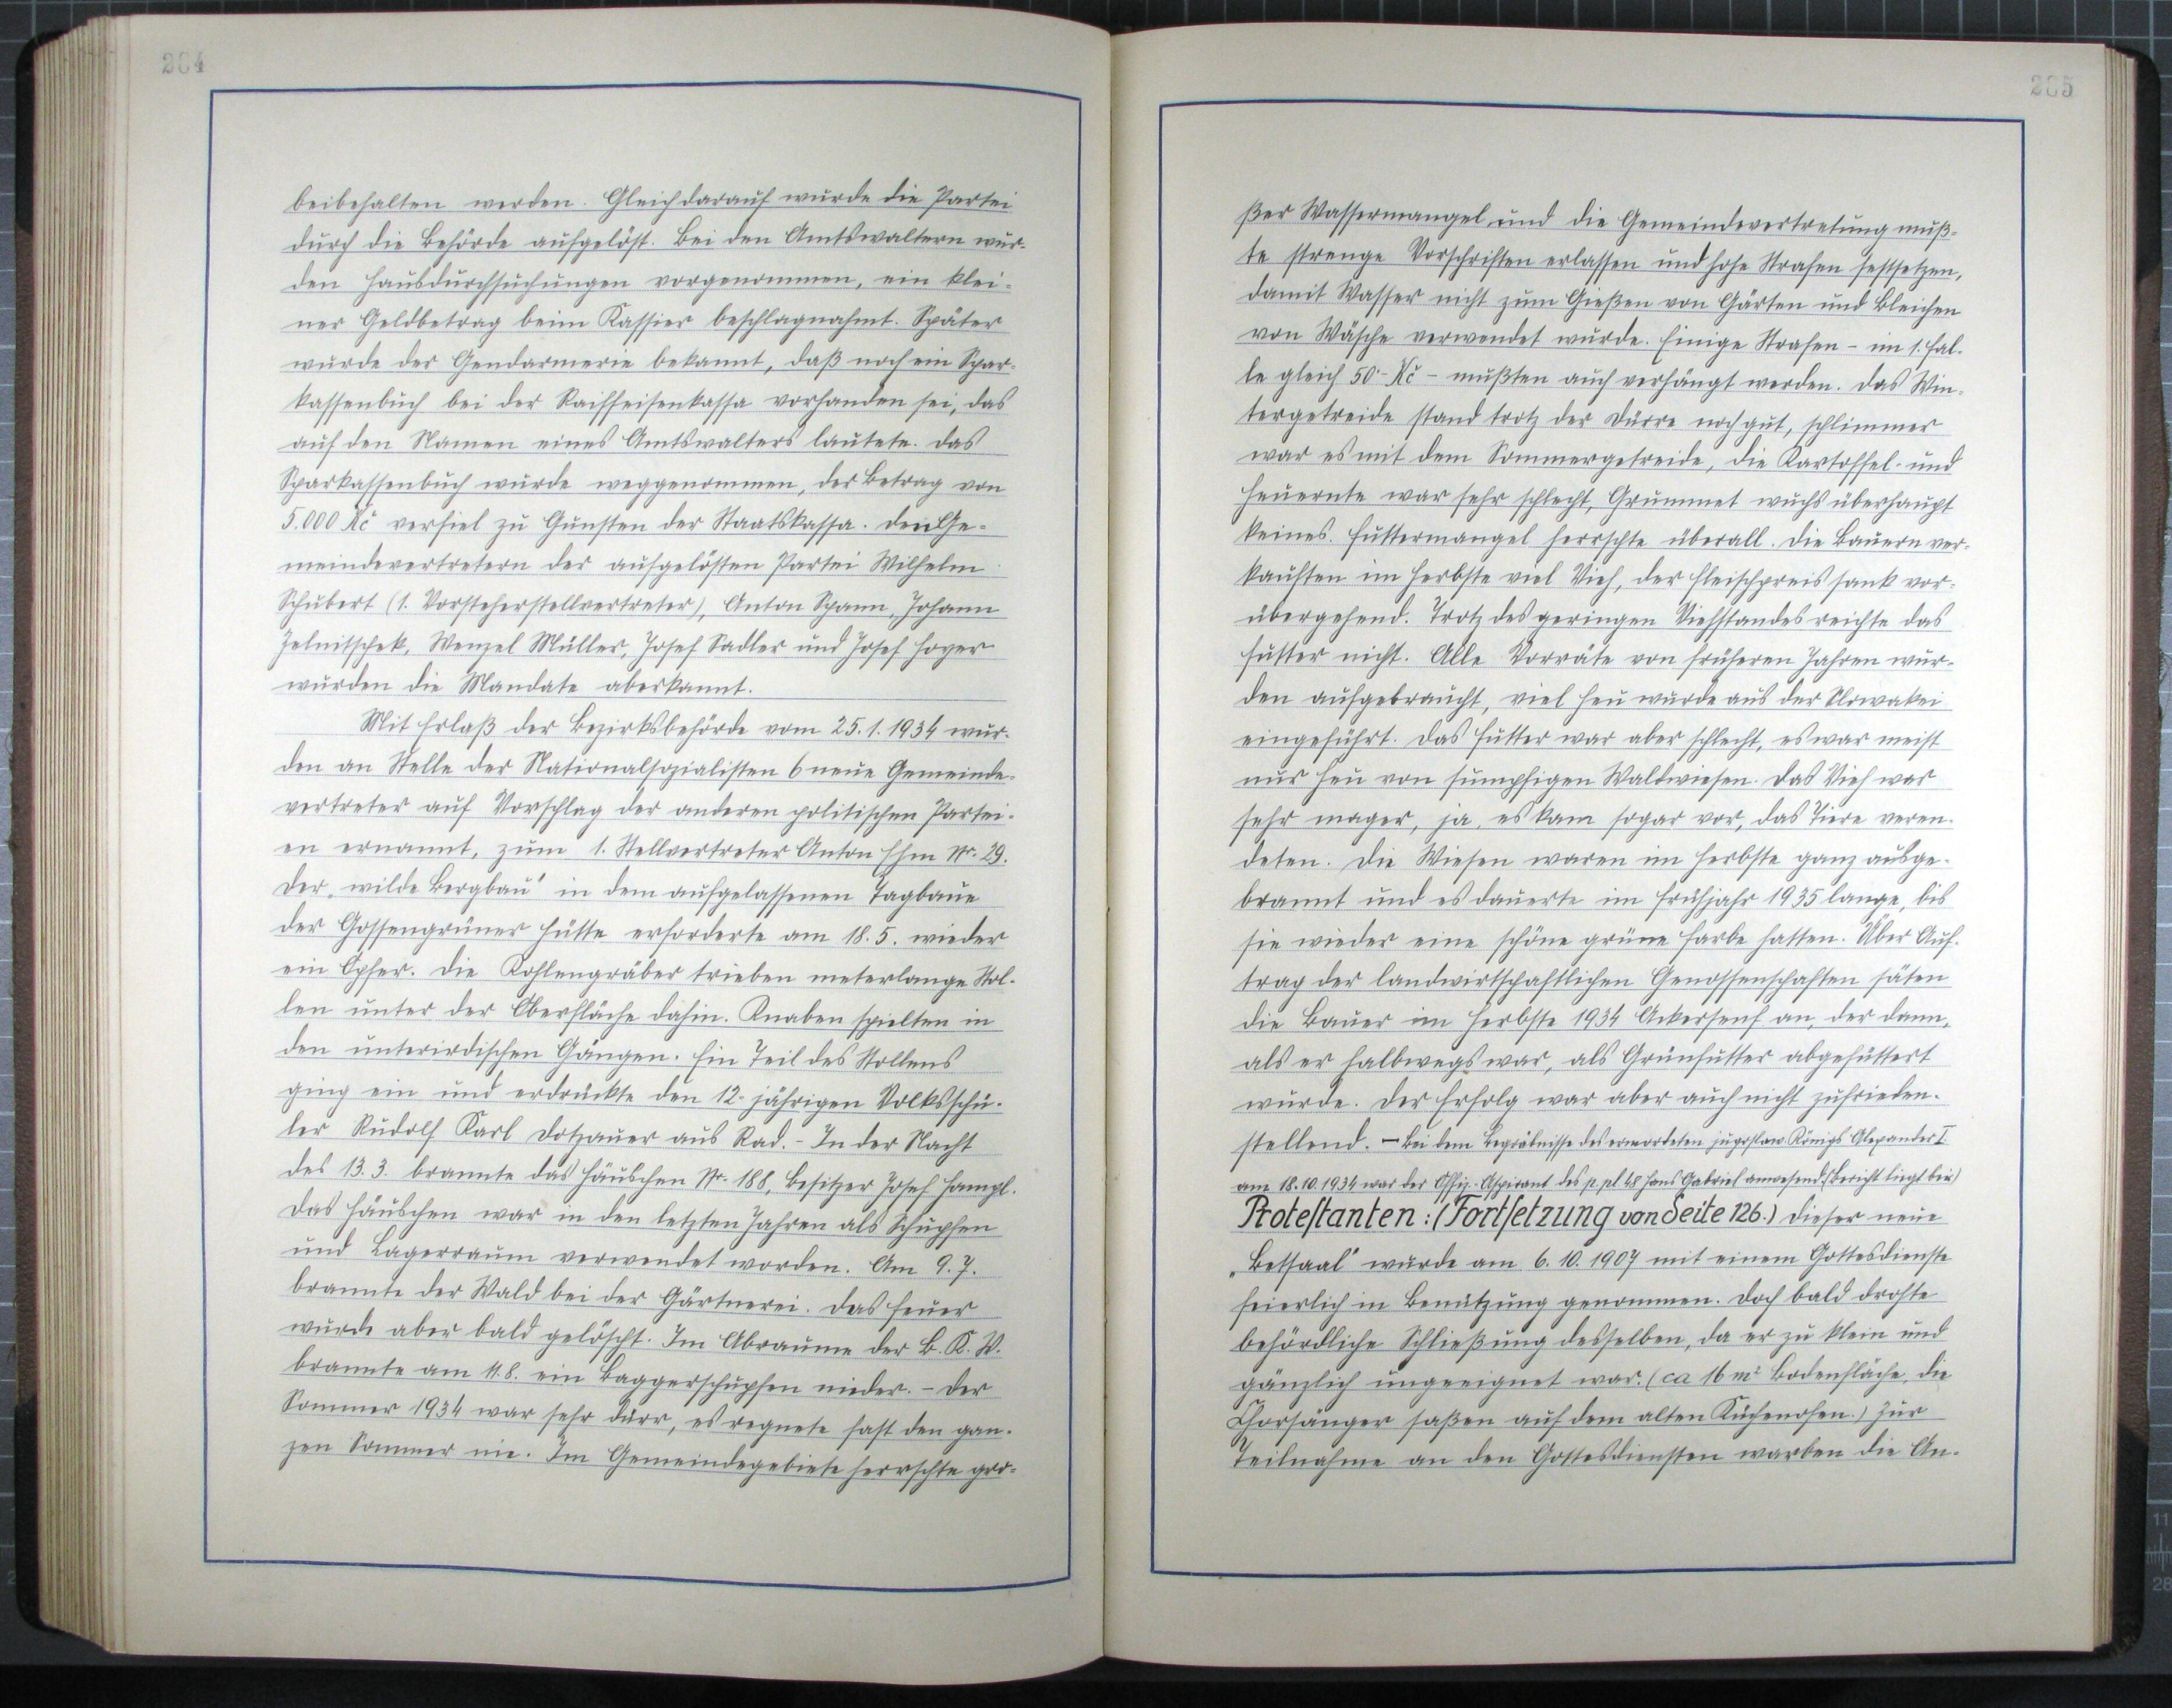 264
beibehalten werden. Gleich darauf wurde die Partei
durch die Behörde aufgelöst. Bei den Amtswaltern wur-
den Hausdurchsuchungen vorgenommen, ein klei-
ner Geldbetrag beim Kassier beschlagnahmt. Später
wurde der Gendarmerie bekannt, daß noch ein Spar-
kassenbuch bei der Raiffeisenkassa vorhanden sei, das
auf den Namen eines Amtswalters lautete. Das
Sparkassenbuch wurde weggenommen, der Betrag von
5.000 Kč verfiel zu Gunsten der Staatskassa. Den Ge-
meindevertretern der aufgelösten Partei Wilhelm
Schubert (1. Vorsteherstellvertreter), Anton Spann, Johann
Zelnitschek, Wenzel Müller, Josef Sadler und Josef Hoyer
wurden die Mandate aberkannt.
Mit Erlaß der Bezirksbehörde vom 25.1.1934 wur-
den an Stelle der Nationalsozialisten 6 neue Gemeinde-
vertreter auf Vorschlag der anderen politischen Partei-
en ernannt, zum 1. Stellvertreter Anton Ehm Nr. 29.
Der „wilde Bergbau" in dem aufgelassenen Tagbaue
der Gossengrüner Hütte erforderte am 18.5. wieder
ein Opfer. Die Kohlengräber trieben meterlange Stol-
len unter der Oberfläche dahin. Knaben spielten in
den unterirdischen Gängen. Ein Teil des Stollens
ging ein und erdrückte den 12-jährigen Volksschü-
ler Rudolf Karl Dotzauer aus Rad. - In der Nacht
des 13.3. brannte das Häuschen Nr. 188, Besitzer Josef Hampl.
Das Häuschen war in den letzten Jahren als Schupfen
und Lagerraum verwendet worden. Am 9.7.
brannte der Wald bei der Gärtnerei. Das Feuer
wurde aber bald gelöscht. Im Abraume der B.K.W.
brannte am 11.8. ein Baggerschupfen nieder. - Der
Sommer 1934 war sehr dürr, es regnete fast den gan-
zen Sommer nie. Im Gemeindegebiete herrschte gro-
265
ßer Wassermangel und die Gemeindevertretung muß-
te strenge Vorschriften erlassen und hohe Strafen festsetzen,
damit Wasser nicht zum Gießen von Gärten und Bleichen
von Wäsche verwendet wurde. Einige Strafen - im 1. Fal-
le gleich 50·- Kč - mußten auch verhängt werden. Das Win-
tergetreide stand trotz der Dürre noch gut, schlimmer
war es mit dem Sommergetreide, die Kartoffel- und
Heuernte war sehr schlecht, Grummet wuchs überhaupt
keines. Futtermangel herrschte überall. Die Bauern ver-
kauften im Herbste viel Vieh, der Fleischpreis sank vor-
übergehend. Trotz des geringen Viehstandes reichte das
Futter nicht. Alle Vorräte von früheren Jahren wur-
den aufgebraucht, viel Heu wurde aus der Slowakei
eingeführt. Das Futter war aber schlecht, es war meist
nur Heu von sumpfigen Waldwiesen. Das Vieh war
sehr mager, ja, es kam sogar vor, das Tiere veren-
deten. Die Wiesen waren im Herbste ganz ausge-
brannt und es dauerte im Frühjahr 1935 lange, bis
sie wieder eine schöne grüne Farbe hatten. Über Auf-
trag der landwirtschaftlichen Genossenschaften säten
die Bauer im Herbste 1934 Ackersenf an, der dann,
als er halbwegs war, als Grünfutter abgefüttert
wurde. Der Erfolg war aber auch nicht zufrieden-
stellend. — Bei dem Begräbnisse des ermordeten jugoslaw. Königs Alexander I.
am 18.10.1934 war der Offiz.-Aspirant des p. pl 48 Hans Gabriel anwesend. (Bericht liegt bei)
Protestanten: (Fortsetzung von Seite 126.) Dieser neue
„Betsaal" wurde am 6.10.1907 mit einem Gottesdienste
feierlich in Benützung genommen. Doch bald drohte
behördliche Schließung desselben, da er zu klein und
gänzlich ungeeignet war. (ca 16 m² Bodenfläche, die
Chorsänger saßen auf dem alten Küchenofen.) Zur
Teilnahme an den Gottesdiensten warben die An-